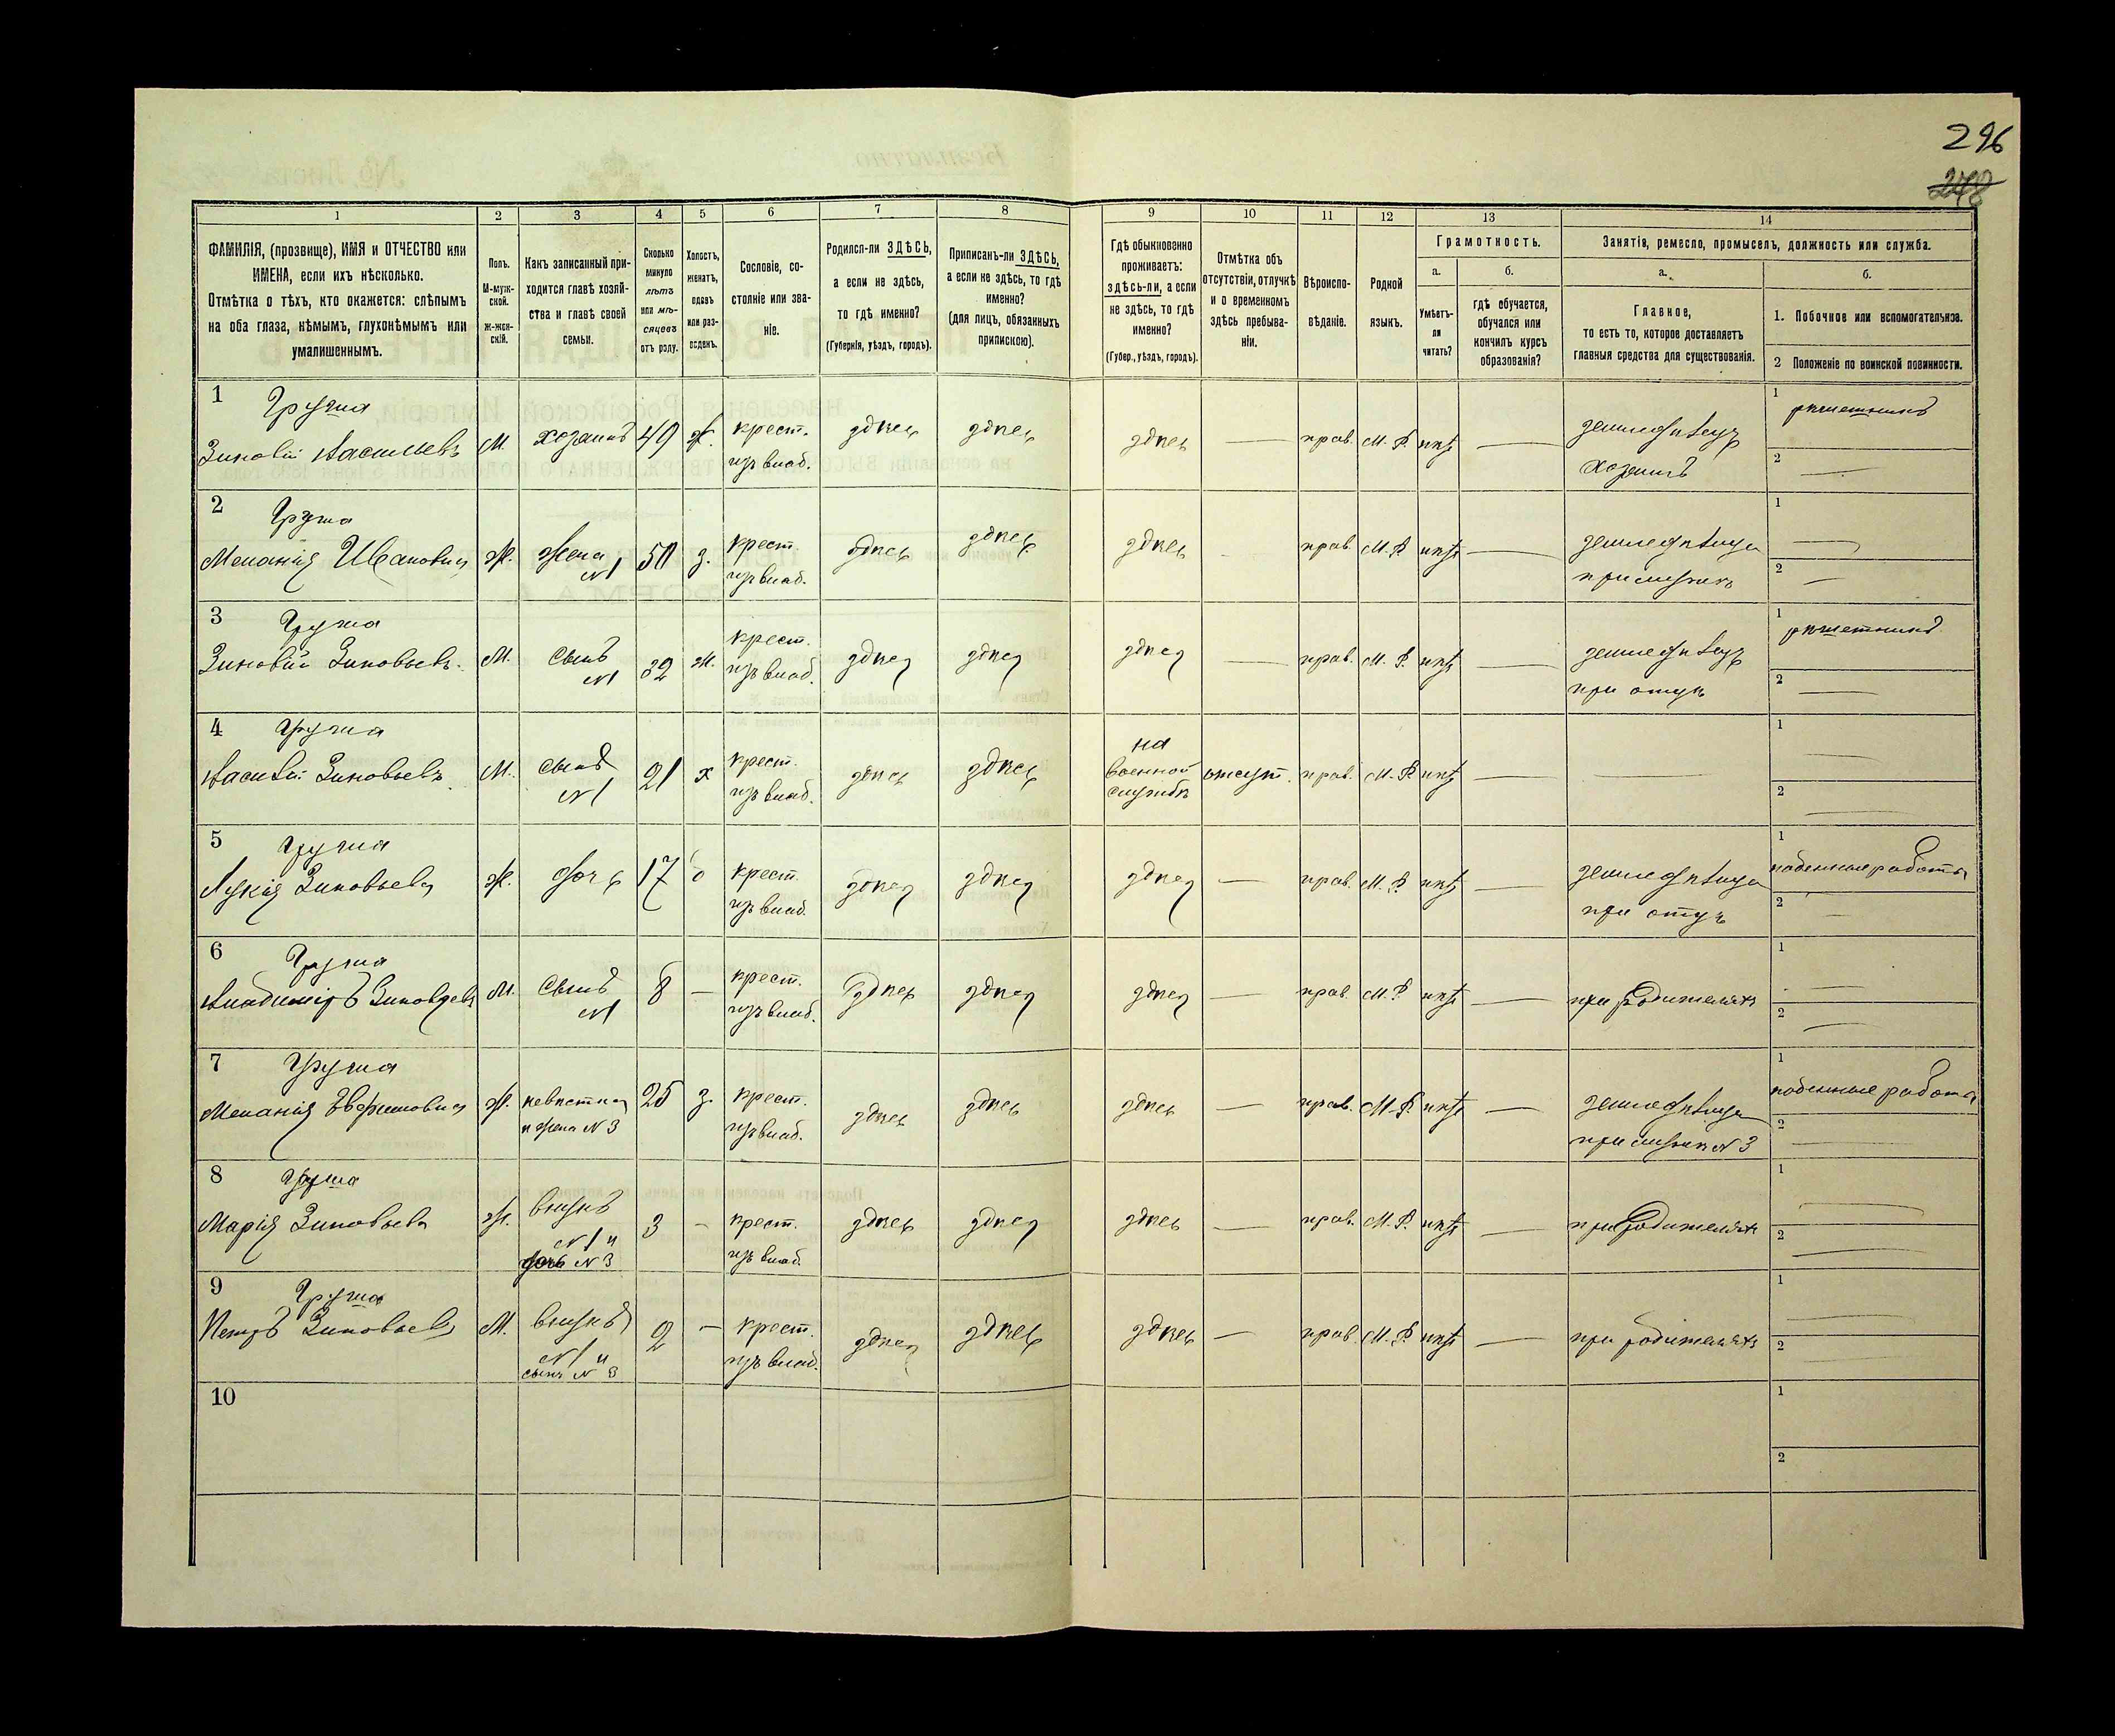 296
278
1 2 3 4 5 6 7 8 9 10 11 12 13 14
ФАМИЛІЯ, (прозвище), ИМЯ и ОТЧЕСТВО или
ИМЕНА, если ихъ нѣсколько.
Отмѣтка о тѣхъ, кто окажется: слѣпымъ
на оба глаза, нѣмымъ, глухонѣмымъ или
умалишеннымъ.
Полъ.
М-муж-
ской.
Ж-жен-
скій.
Какъ записанный при-
ходится главѣ хозяй-
ства и главѣ своей
семьи.
Сколько
минуло
лѣтъ
или мѣ-
сяцевъ
отъ роду.
Холостъ,
женатъ,
вдовъ
или раз-
веденъ.
Сословіе, со-
стояніе или зва-
ніе.
Родился-ли ЗДѢСЬ,
а если не здѣсь,
то гдѣ именно?
(Губернія, уѣздъ, городъ).
Приписанъ-ли ЗДѢСЬ,
а если не здѣсь, то гдѣ
именно?
(для лицъ, обязанныхъ
припискою).
Гдѣ обыкновенно
проживаетъ:
здѣсь-ли, а если
не здѣсь, то гдѣ
именно?
(Губер., уѣздъ, городъ).
Отмѣтка объ
отсутствіи, отлучкѣ
и о временномъ
здѣсь пребыва-
ніи.
Вѣроиспо-
вѣданіе.
Родной
языкъ.
Грамотность.
а.
Умѣетъ-
ли
читать?
б.
гдѣ обучается,
обучался или
кончилъ курсъ
образованія?
Занятія, ремесло, промыселъ, должность или служба.
а.
Главное,
то есть то, которое доставляетъ
главныя средства для существованія.
б.
1. Побочное или вспомогательное.
2 Положеніе по воинской повинности.
1 Груша
Зиновій Васильевъ М. хозяинъ 49 ж. крест. изъ влад. здѣсь здѣсь здѣсь — прав. М. Р. нѣтъ — земледѣлецъ хозяинъ
1
2 —
2 Груша
Меланія Ивановна Ж. жена N1 50 з. крест. изъ влад. здѣсь здѣсь здѣсь — прав. М. Р. нѣтъ — земледѣлица при мужѣ
1 —
2 —
3 Груша
Зиновій Зиновьевъ М. сынъ N1 32 ж. крест. изъ влад. здѣсь здѣсь здѣсь — прав. М. Р. нѣтъ — земледѣлецъ при отцѣ
1
2 —
4 Груша
Василій Зиновьевъ М. сынъ N1 21 х крест. изъ влад. здѣсь здѣсь на военной службѣ отсут. прав. М. Р. нѣтъ — —
1 —
2 —
5 Груша
Лукія Зиновьева Ж. дочь 17 крест. изъ влад. здѣсь здѣсь здѣсь — прав. М. Р. нѣтъ — земледѣлица при отцѣ
1 поденные работы
2 —
6 Груша
Владиміръ Зиновьевъ М. сынъ N1 8 — крест. изъ влад. здѣсь здѣсь здѣсь — прав. М. Р. нѣтъ — при родителяхъ
1 —
2 —
7 Груша
Меланія Ефимовна Ж. невѣстка и жена N 3 25 з. крест. изъ влад. здѣсь здѣсь здѣсь — прав. М. Р. нѣтъ — земледѣлица при мужѣ N 3
1 поденные работы
2 —
8 Груша
Марія Зиновьева Ж. внукъ N1 и дочь N 3 3 — крест. изъ влад. здѣсь здѣсь здѣсь — прав. М. Р. нѣтъ — при родителяхъ
1 —
2 —
9 Груша
Петръ Зиновьевъ М. внукъ N1 и сынъ N 3 2 — крест. изъ влад. здѣсь здѣсь здѣсь — прав. М. Р. нѣтъ — при родителяхъ
1 —
2 —
10
1
2